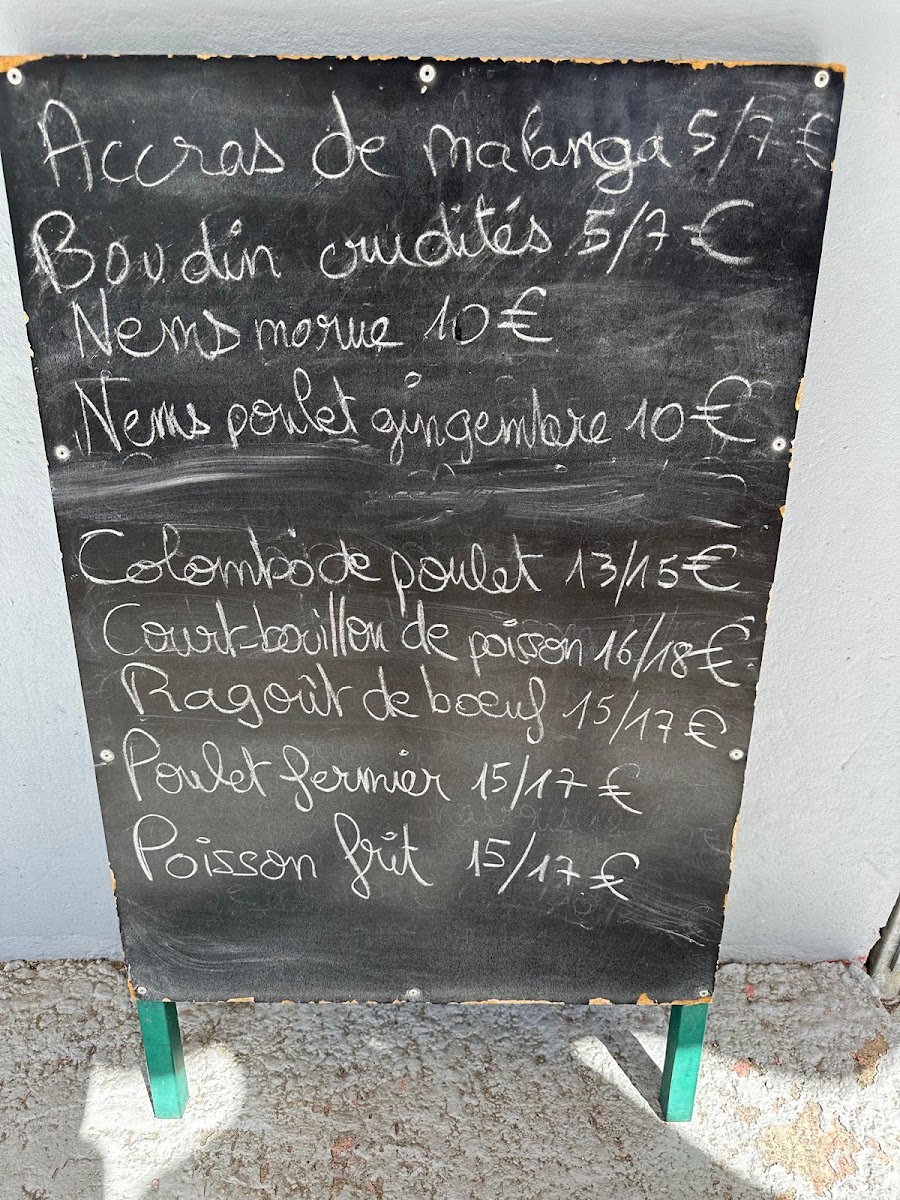 Accras de malanga 5/7 €
Boudin crudités 5/7 €
Nems morue 10 €
Nems poulet gingembre 10 €
Colombo de poulet 13/15 €
Court-bouillon de poisson 16/18 €
Ragoût de boeuf 15/17 €
Poulet fermier 15/17 €
Poisson frit 15/17 €